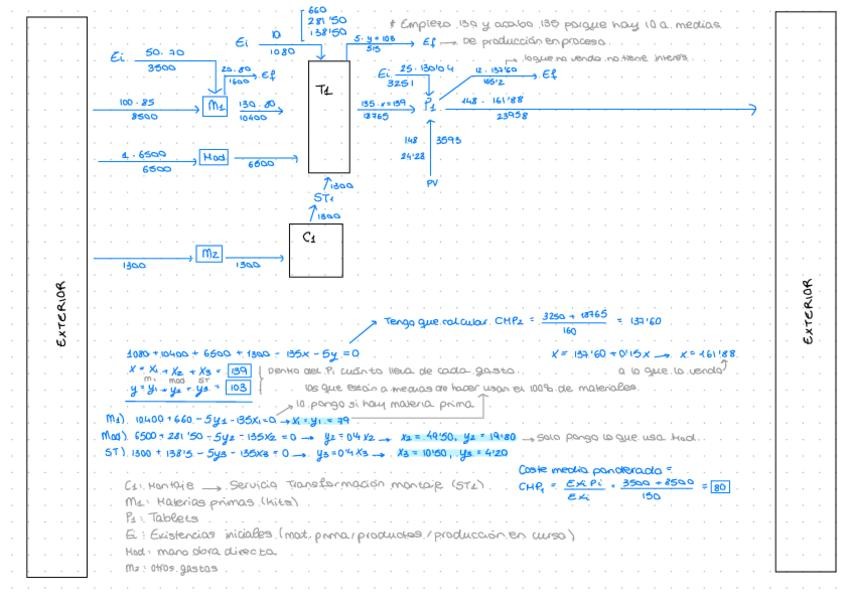 EXTERIOR
660
281'50
138'50
Ei 10
1080
5·y=103
515
Ef → de producción en proceso.
* Empiezo 130 y acabo 135 porque hay 10 a medias
Ei 50·70
3500
20·80
1600
Ef
100·85
8500
M1
130·80
10400
T1
135·x=139
18765
Ei 25·130'04
3251
lo que no vendo no tiene interés.
12·137'60
1651'2
Ef
P1
148·161'88
23958
148
24'28
3593
PV
1·6500
6500
Mod
6500
1300
ST1
1300
C1
1300
M2
1300
EXTERIOR
Tengo que calcular CMP2 = 3250 + 18765 / 160 = 137'60
1080 + 10400 + 6500 + 1300 - 135x - 5y = 0
x = 137'60 + 0'15x → x = 161'88
a lo que lo vendo
x = x1 + x2 + x3 = 139
M1 MOD ST
y = y1 + y2 + y3 = 103
Dentro del P1 cuánto lleva de cada gasto.
los que están a medias de hacer usan el 100% de materiales.
lo pongo si hay materia prima
M1) 10400 + 660 - 5y1 - 135x1 = 0 → x1 = y1 = 79
Mod) 6500 + 281'50 - 5y2 - 135x2 = 0 → y2 = 0'4x2 → x2 = 49'50, y2 = 19'80 → Solo pongo lo que usa Mod.
ST) 1300 + 138'5 - 5y3 - 135x3 = 0 → y3 = 0'4x3 → x3 = 10'50, y3 = 4'20
Coste medio ponderado =
CMP1 = Exi Pi / Exi = 3500 + 8500 / 150 = 80
C1: Montaje → Servicio Transformación montaje (ST1).
M1: Materias primas (kits)
P1: Tablets
Ei: Existencias iniciales (mat. prima/productos/producción en curso)
Mod: mano obra directa
M2: otros gastos